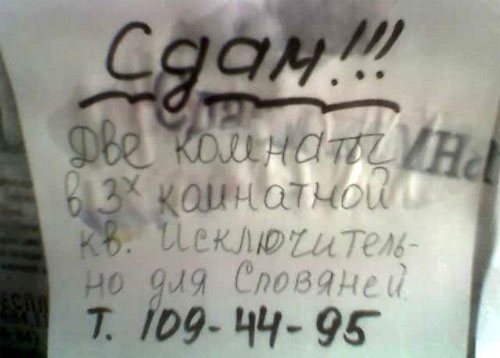 Сдам!!!
Две комнаты
в 3х комнатной
кв. Исключитель-
но для Словяней
т. 109-44-95